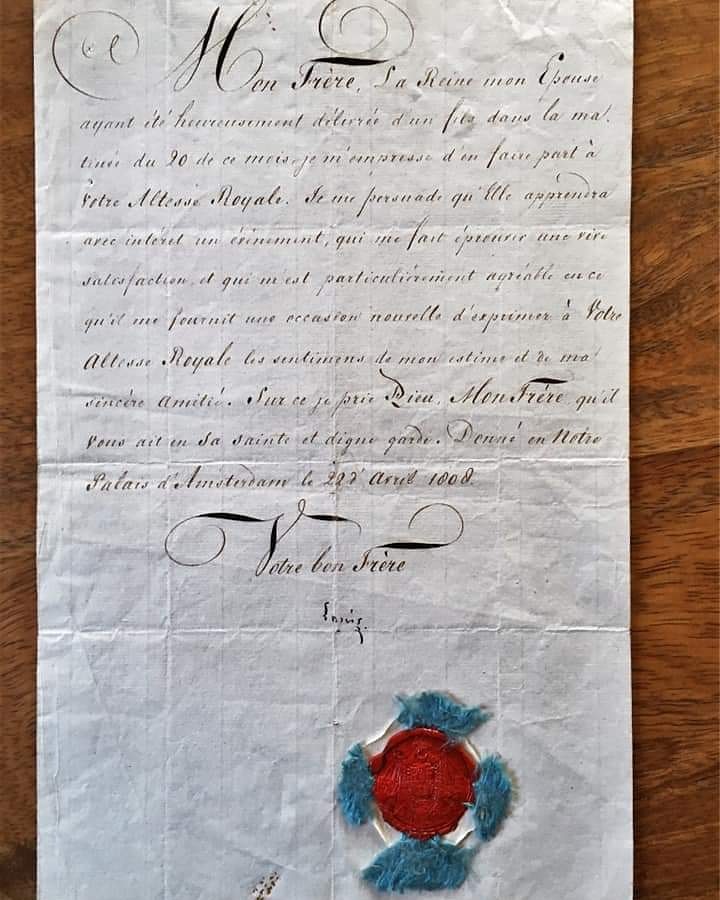 Mon Frère, La Reine mon Epouse
ayant été heureusement délivrée d'un fils dans la ma,
tinée du 20 de ce mois, je m'empresse d'en faire part à
Votre Altesse Royale. Je me persuade qu'Elle apprendra
avec intéret un événement, qui me fait éprouver une vive
satisfaction, et qui m'est particulièrement agréable en ce
qu'il me fournit une occasion nouvelle d'exprimer à Votre
Altesse Royale les sentimens de mon estime et de ma
sincère amitié. Sur ce je prie Dieu, Mon Frère, qu'il
vous ait en sa sainte et digne garde. Donné en Notre
Palais d'Amsterdam le 22d' Avril 1808.
Votre bon Frère
Louis